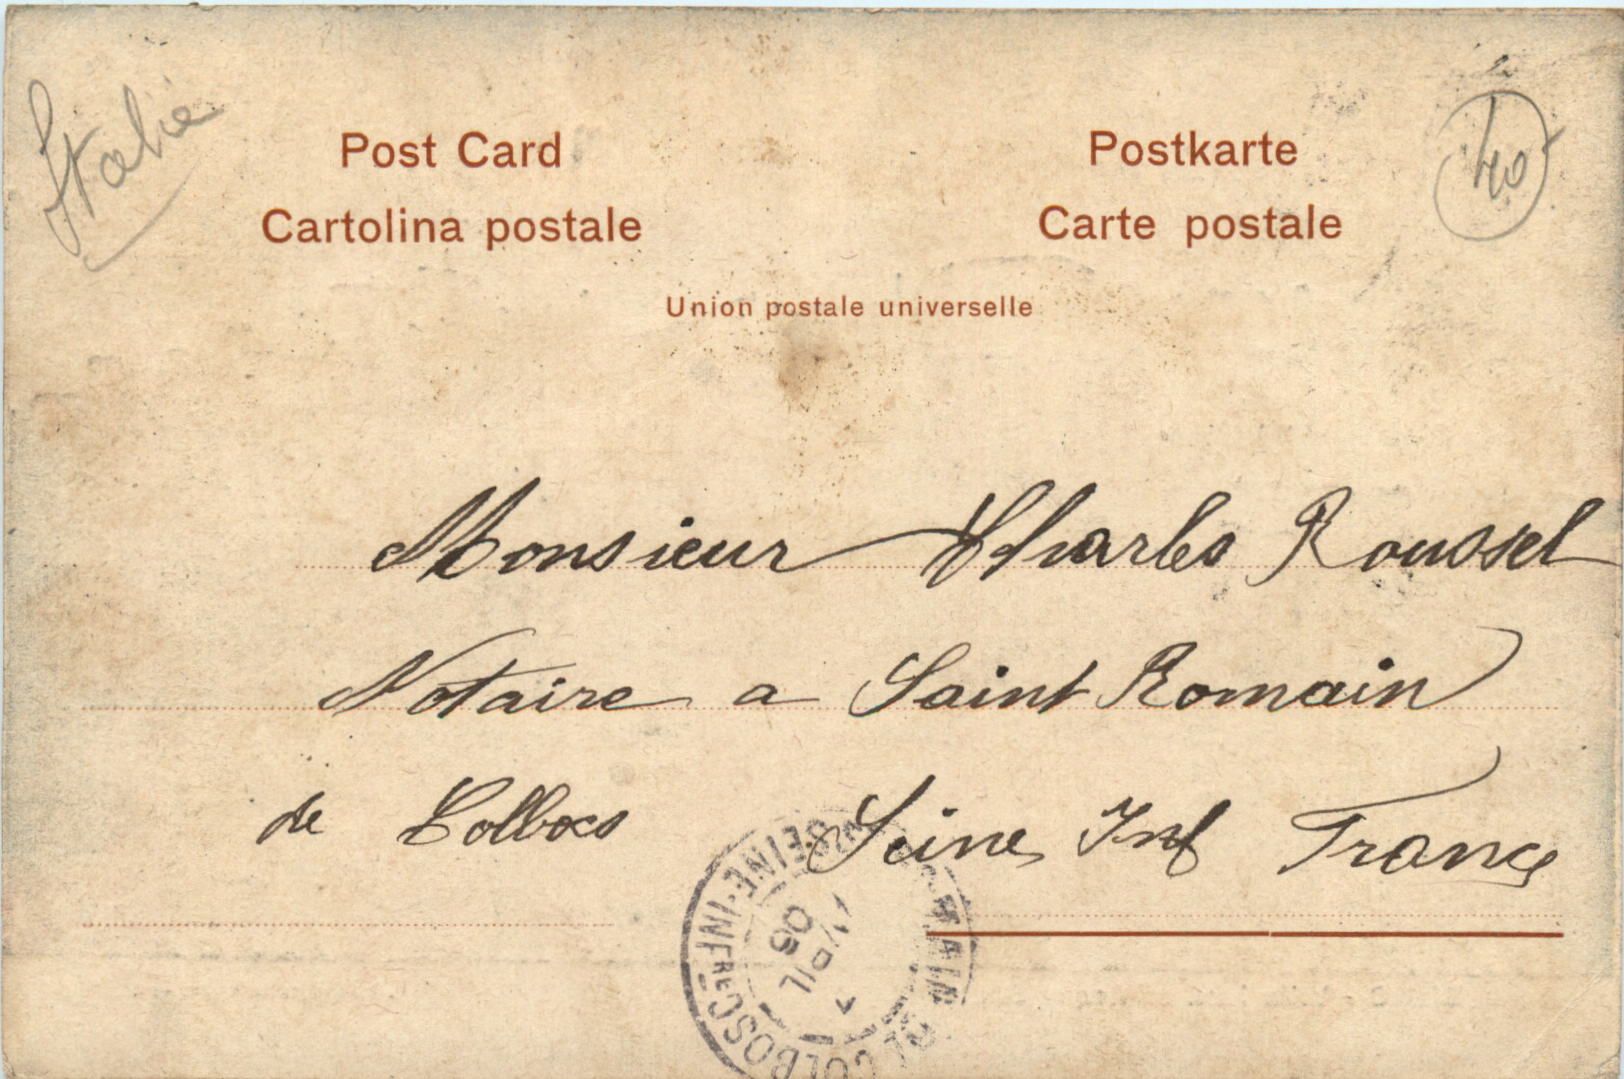 Italie
40
Post Card
Postkarte
Cartolina postale
Carte postale
Union postale universelle
Monsieur Charles Roussel
Notaire a Saint Romain
de Colbocs Seine Inf France
MAIN DE COLBOSC SEINE-INFRE
AVRIL
06